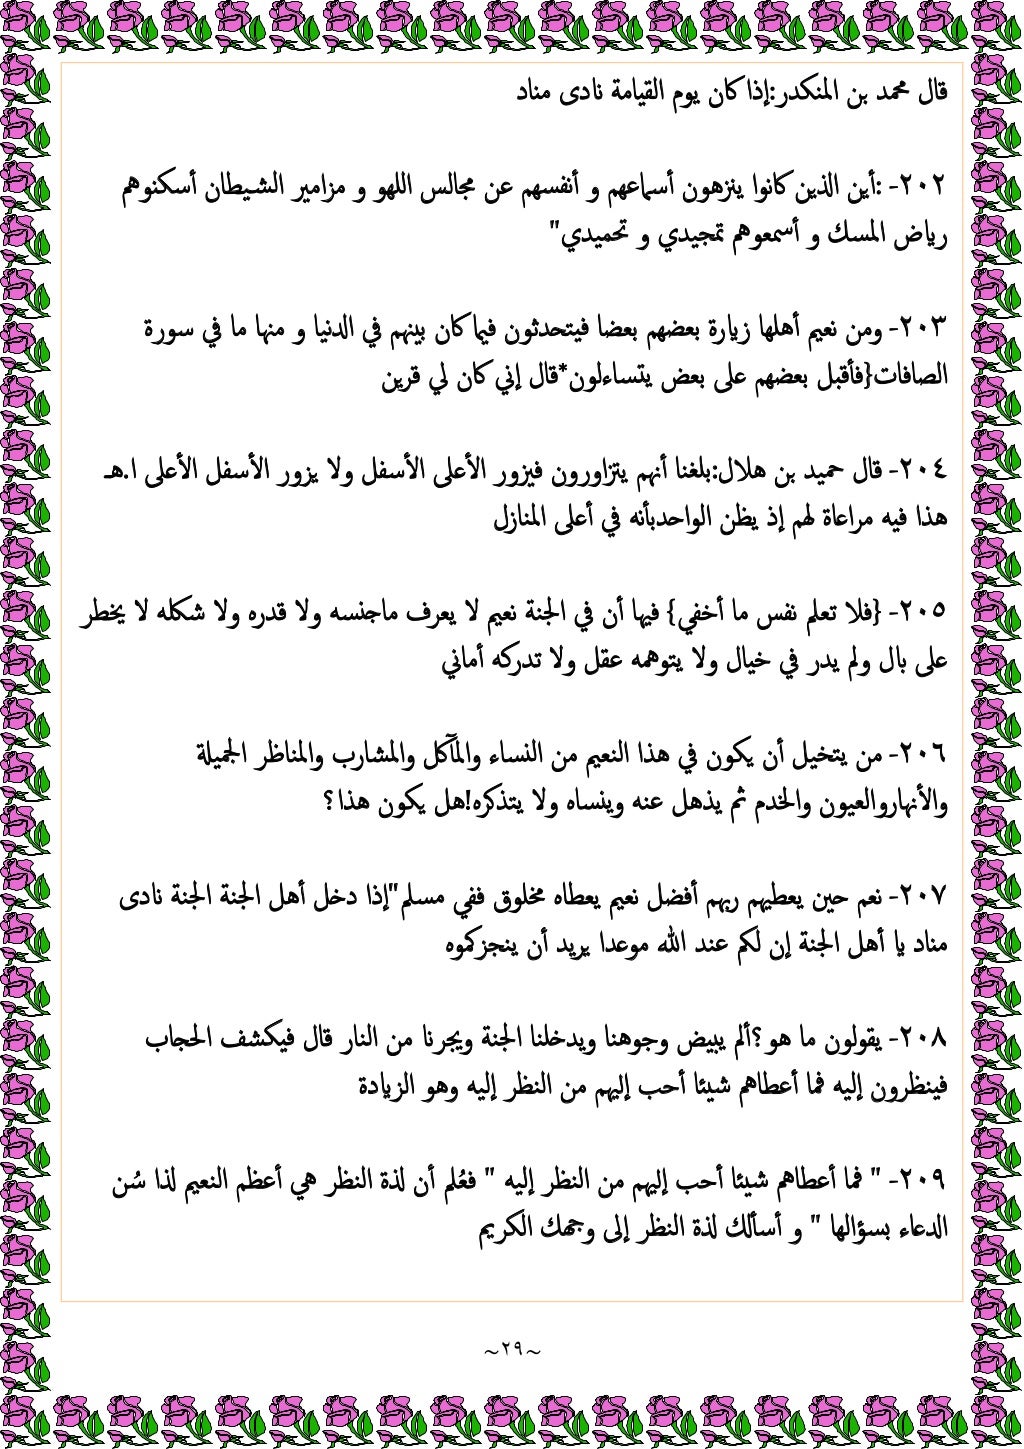 قال محمد بن المنكدر:إذا كان يوم القيامة نادى مناد
٢٠٢- :أين الذين كانوا ينزهون أسماعهم و أنفسهم عن مجالس اللهو و مزامير الشيطان أسكنوهم
رياض المسك و أسمعوهم تمجيدي و تحميدي"
٢٠٣- ومن نعيم أهلها زيارة بعضهم بعضا فيتحدثون فيما كان بينهم في الدنيا و منها ما في سورة
الصافات{فأقبل بعضهم على بعض يتساءلون*قال إني كان لي قرين
٢٠٤- قال حميد بن هلال:بلغنا أنهم يتزاورون فيزور الأعلى الأسفل ولا يزور الأسفل الأعلى ا.هـ
هذا فيه مراعاة لهم إذ يظن الواحدبأنه في أعلى المنازل
٢٠٥- {فلا تعلم نفس ما أخفي} فيها أن في الجنة نعيم لا يعرف ماجنسه ولا قدره ولا شكله لا يخطر
على بال ولم يدر في خيال ولا يتوهمه عقل ولا تدركه أماني
٢٠٦- من يتخيل أن يكون في هذا النعيم من النساء والمآكل والمشارب والمناظر الجميلة
والأنهاروالعيون والخدم ثم يذهل عنه وينساه ولا يتذكره!هل يكون هذا؟
٢٠٧- نعم حين يعطيهم ربهم أفضل نعيم يعطاه مخلوق ففي مسلم"إذا دخل أهل الجنة الجنة نادى
مناد يا أهل الجنة إن لكم عند الله موعدا يريد أن ينجزكموه
٢٠٨- يقولون ما هو؟ألم يبيض وجوهنا ويدخلنا الجنة ويجرنا من النار قال فيكشف الحجاب
فينظرون إليه فما أعطاهم شيئا أحب إليهم من النظر إليه وهو الزيادة
٢٠٩- " فما أعطاهم شيئا أحب إليهم من النظر إليه " فعُلم أن لذة النظر هي أعظم النعيم لذا سُن
الدعاء بسؤالها " و أسألك لذة النظر إلى وجهك الكريم
~٢٩~